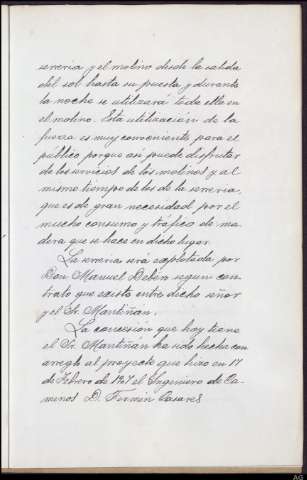 serreria y el molino desde la salida
del sol hasta su puesta y durante
la noche se utilizará toda ella en
el molino. Esta utilización de la
fuerza es muy conveniente para el
público porque asi puede disfrutar
de los servicios de los molinos y al
mismo tiempo de los de la serreria,
que es de gran necesidad por el
mucho consumo y tráfico de ma-
dera que se hace en dicho lugar.
La serreria será explotada por
Don Manuel Debén segun con-
trato que existe entre dicho señor
y el Sr. Mantiñan.
La concesion que hoy tiene
el Sr. Mantiñán ha sido hecha con
arreglo al proyecto que hizo en 17
de Febrero de 1907 el Ingeniero de Ca-
minos D. Fermin Casares
AG